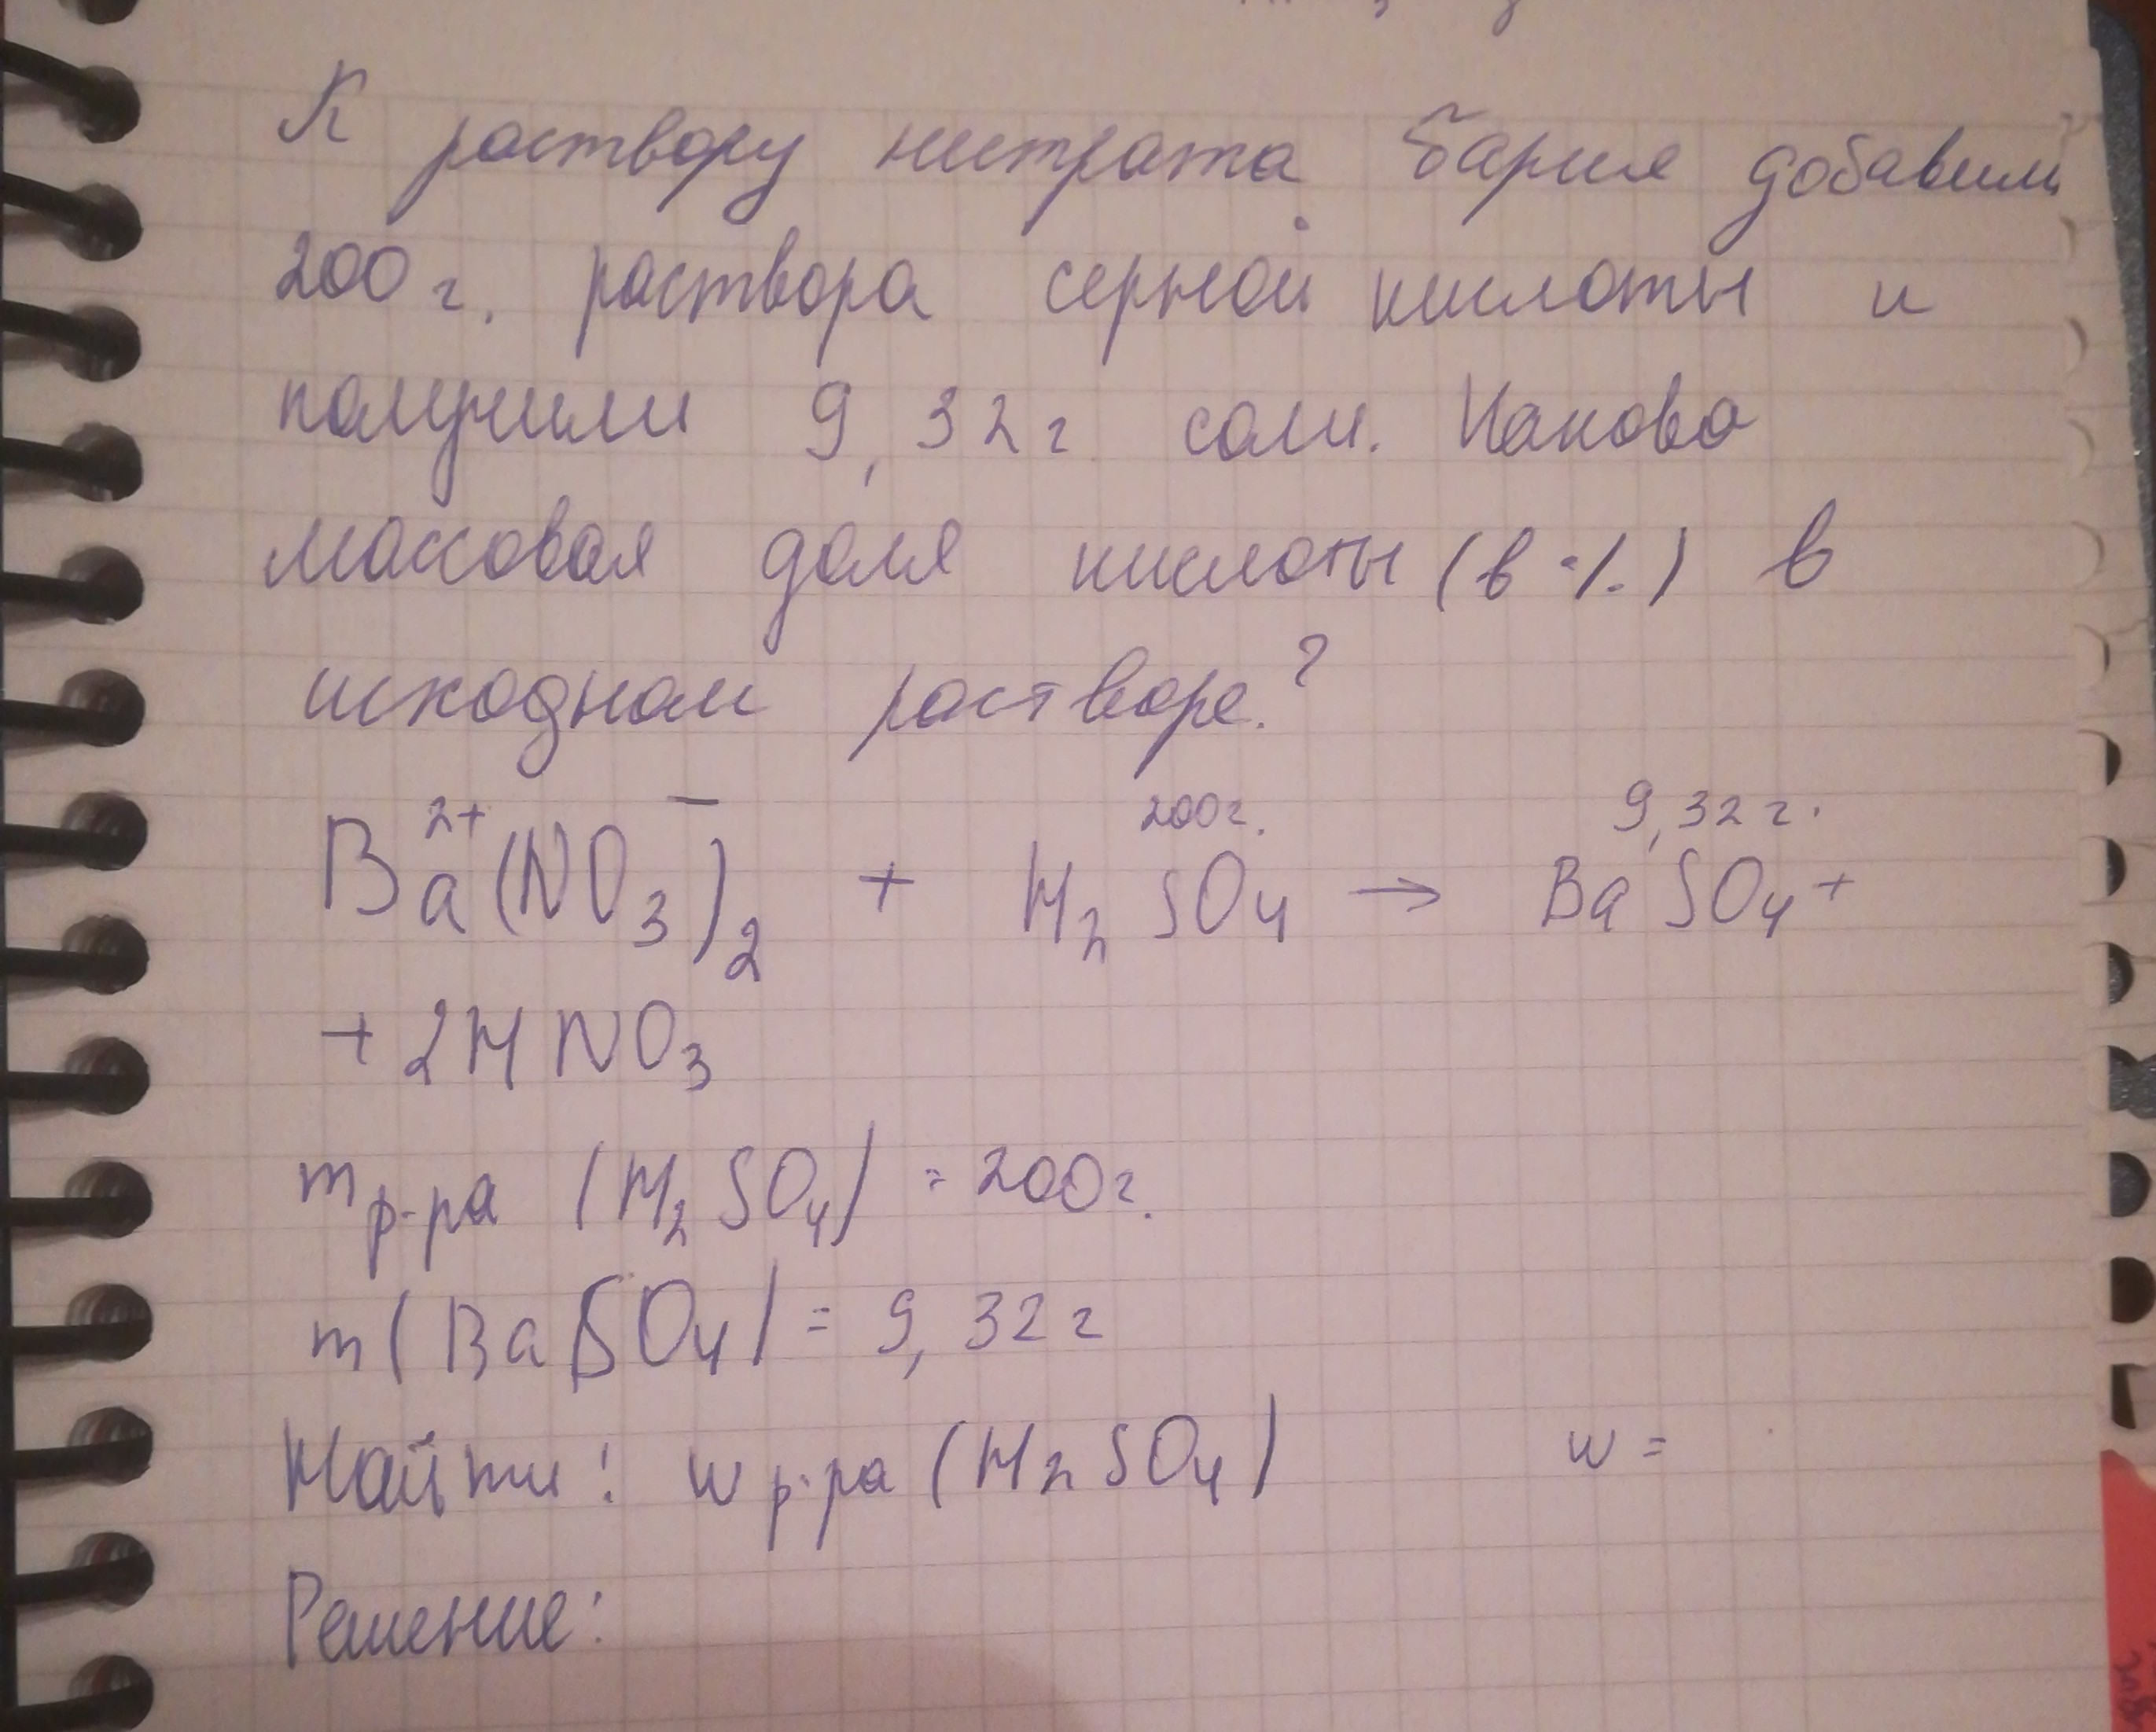 К раствору нитрата бария добавили
200 г. раствора серной кислоты и
получили 9,32 г соли. Какова
массовая доля кислоты (в %) в
исходном растворе.?
2+ − 200г. 9,32 г.
Ba(NO3)2 + H2SO4 → BaSO4 +
+ 2HNO3
m р-ра (H2SO4) = 200г.
m(BaSO4) = 9,32 г
Найти: w р-ра (H2SO4) w =
Решение: